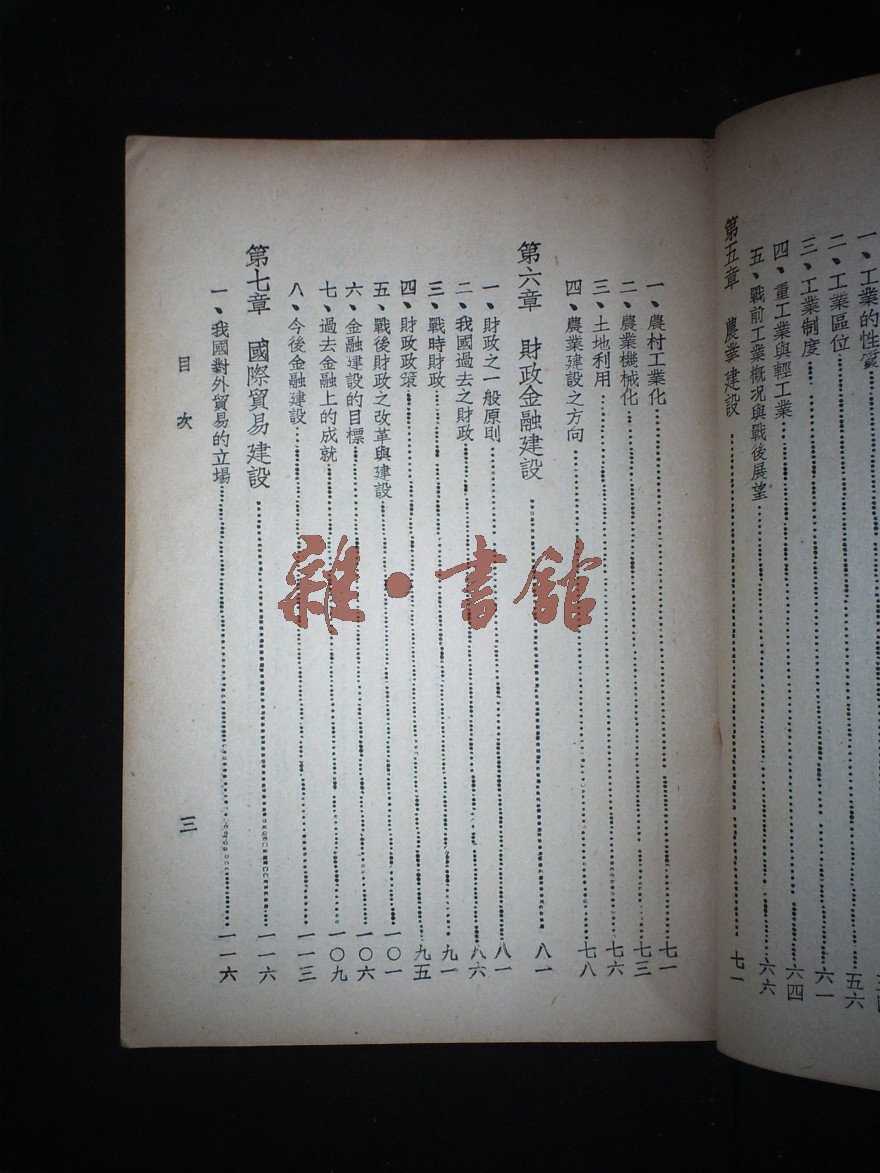 一、工業的性質
二、工業區位……五六
三、工業制度……六一
四、重工業與輕工業……六四
五、戰前工業概況與戰後展望……六六
第五章　農業建設……七一
一、農村工業化……七一
二、農業機械化……七三
三、土地利用……七六
四、農業建設之方向……七八
第六章　財政金融建設……八一
一、財政之一般原則……八一
二、我國過去之財政……八六
三、戰時財政……九一
四、財政政策……九五
五、戰後財政之改革與建設……一〇一
六、金融建設的目標……一〇六
七、過去金融上的成就……一〇九
八、今後金融建設……一一三
第七章　國際貿易建設……一一六
一、我國對外貿易的立場……一一六
目次
三
雜・書館